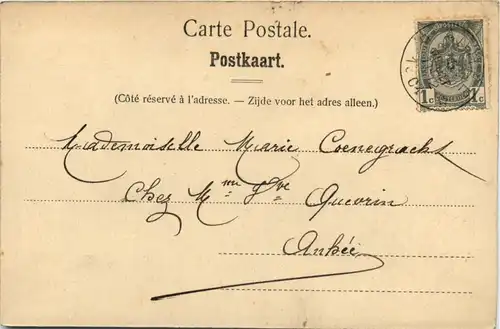 Carte Postale.
Postkaart.
(Côté réservé à l'adresse. — Zijde voor het adres alleen.)
1c 1c
Mademoiselle Marie Coenegracht
Chez Mme Vve Quevrin
Anhée